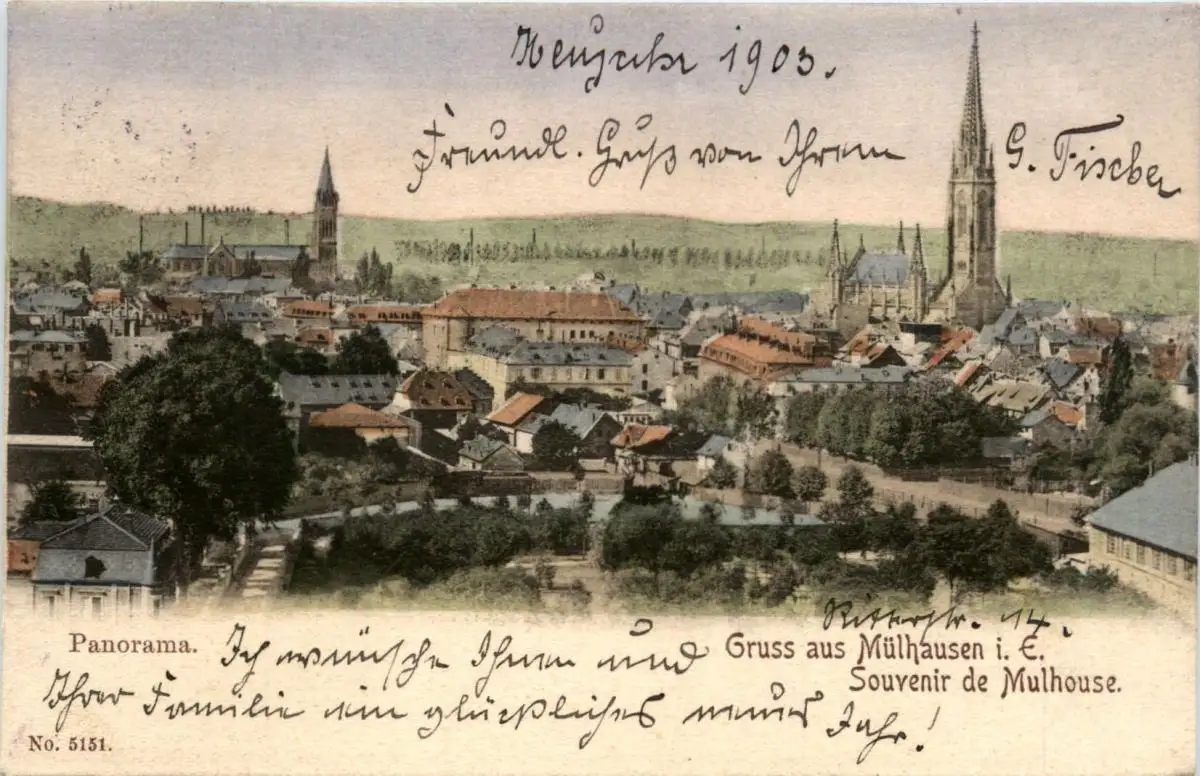 Neujahr 1903.
Freundl. Gruß von Ihrem G. Fischer
Ritterstr. 14.
Panorama.
Gruss aus Mülhausen i. E.
Souvenir de Mulhouse.
Ich wünsche Ihnen und
Ihrer Familie ein glückliches neues Jahr!
No. 5151.